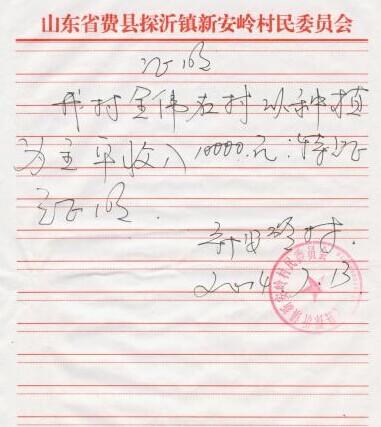 山东省费县探沂镇新安岭村民委员会
证明
我村全伟在村以种植
为主年收入10000元.特此
证明.
新安岭村.
2014.7.13